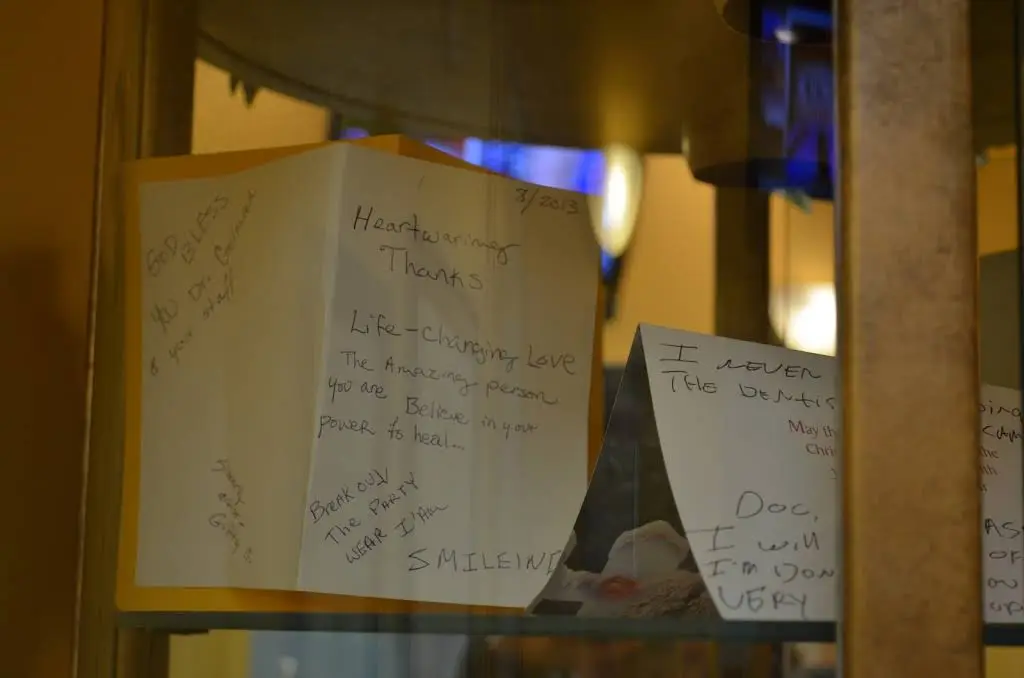 GOD BLESS
YOU Dr.
& your staff
8/2013
Heartwarimng
Thanks
Life-Changing Love
The Amazing person
you are Believe in your
power to heal...
BreakOUt
The PARTY
WEAR I'AM
SMILEING
I NEVER
THE DENTIS
May th
Chri
Doc,
I will
I'm DON
VERY
oing
CAM
he
th
AS
OF
OU